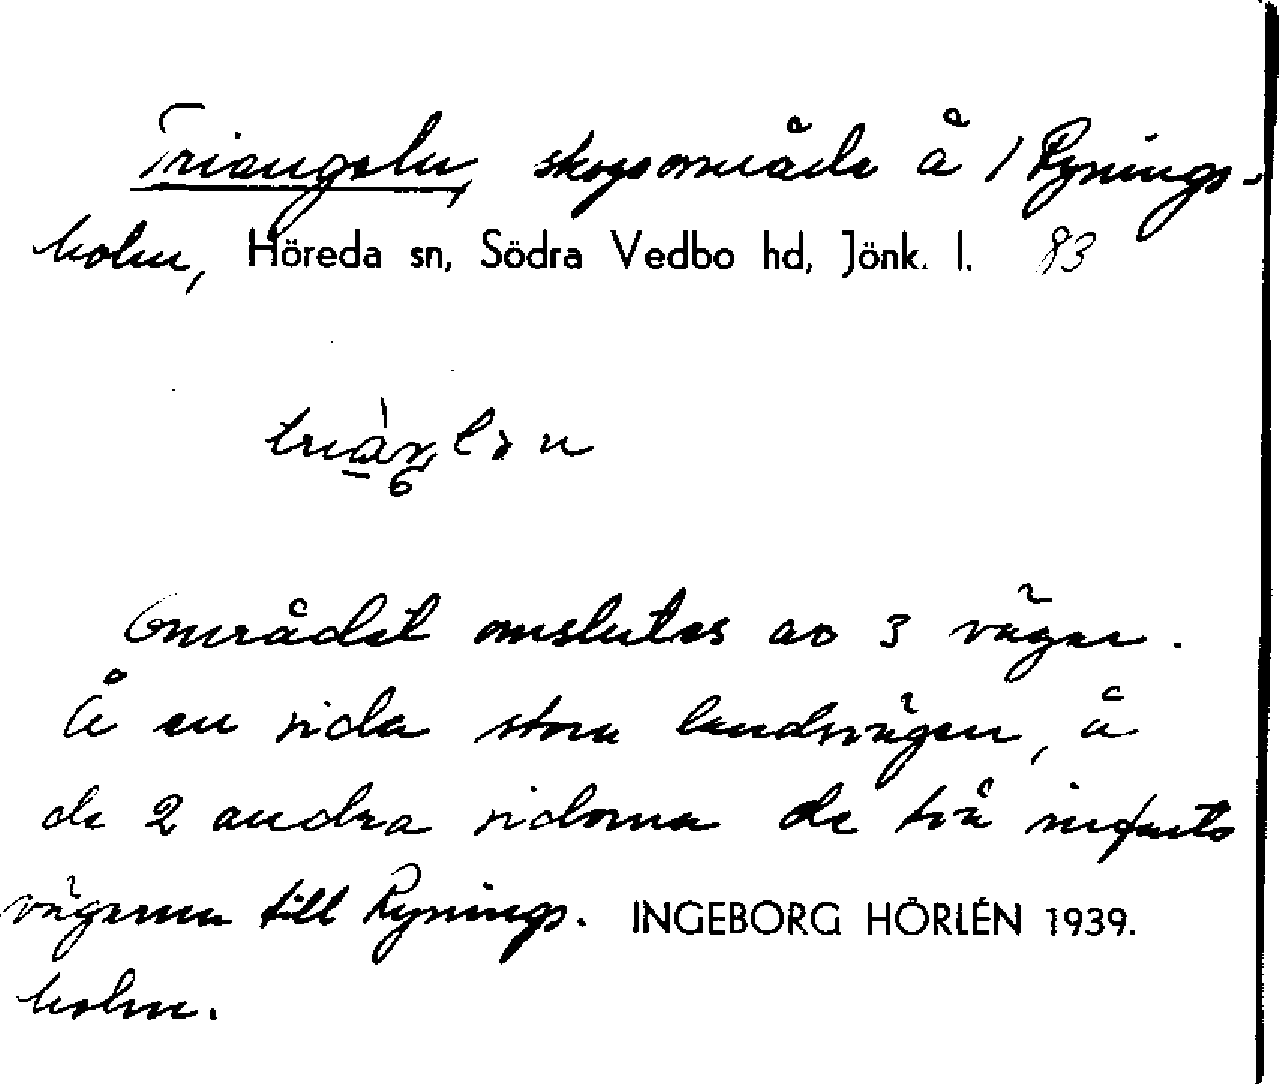 Triangeln, skogsområde å 1 Rynings-
holm, Höreda sn, Södra Vedbo hd, Jönk. l. 83
Området omslutes av 3 vägar.
Å en sida stora landsvägen, å
de 2 andra sidorna de två infarts
vägarna till Rynings- INGEBORG HÖRLÉN 1939.
holm.